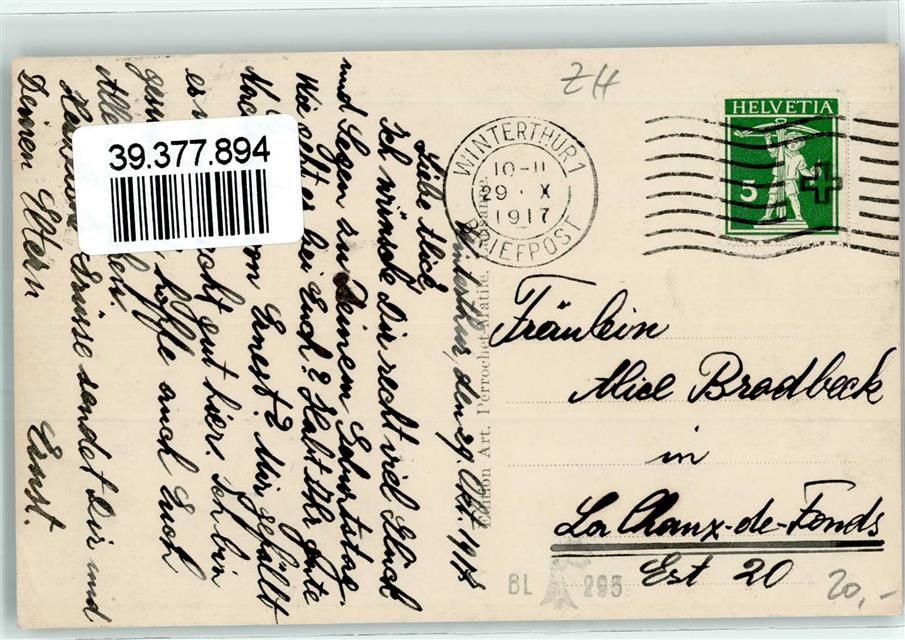 ZH
HELVETIA
5
WINTERTHUR 1
10-11
29. X
1917
BRIEFPOST
39.377.894
Winterthur, den 29. Okt. 1917
Liebe Alice,
Ich wünsche Dir recht viel Glück
und Segen zu Deinem Geburtstag.
Wie geht es bei Euch? Habt Ihr gute
von Ernest? Mir gefällt
es recht gut hier. Ich bin
hoffe auch Euch
Alle
Grüsse sendet Dir und
Deinen Eltern Ernst.
Edition Art. Perrochet-Matile,
Fräulein
Alice Brodbeck
in
La Chaux-de-Fonds
Est 20
BL 293
20,-